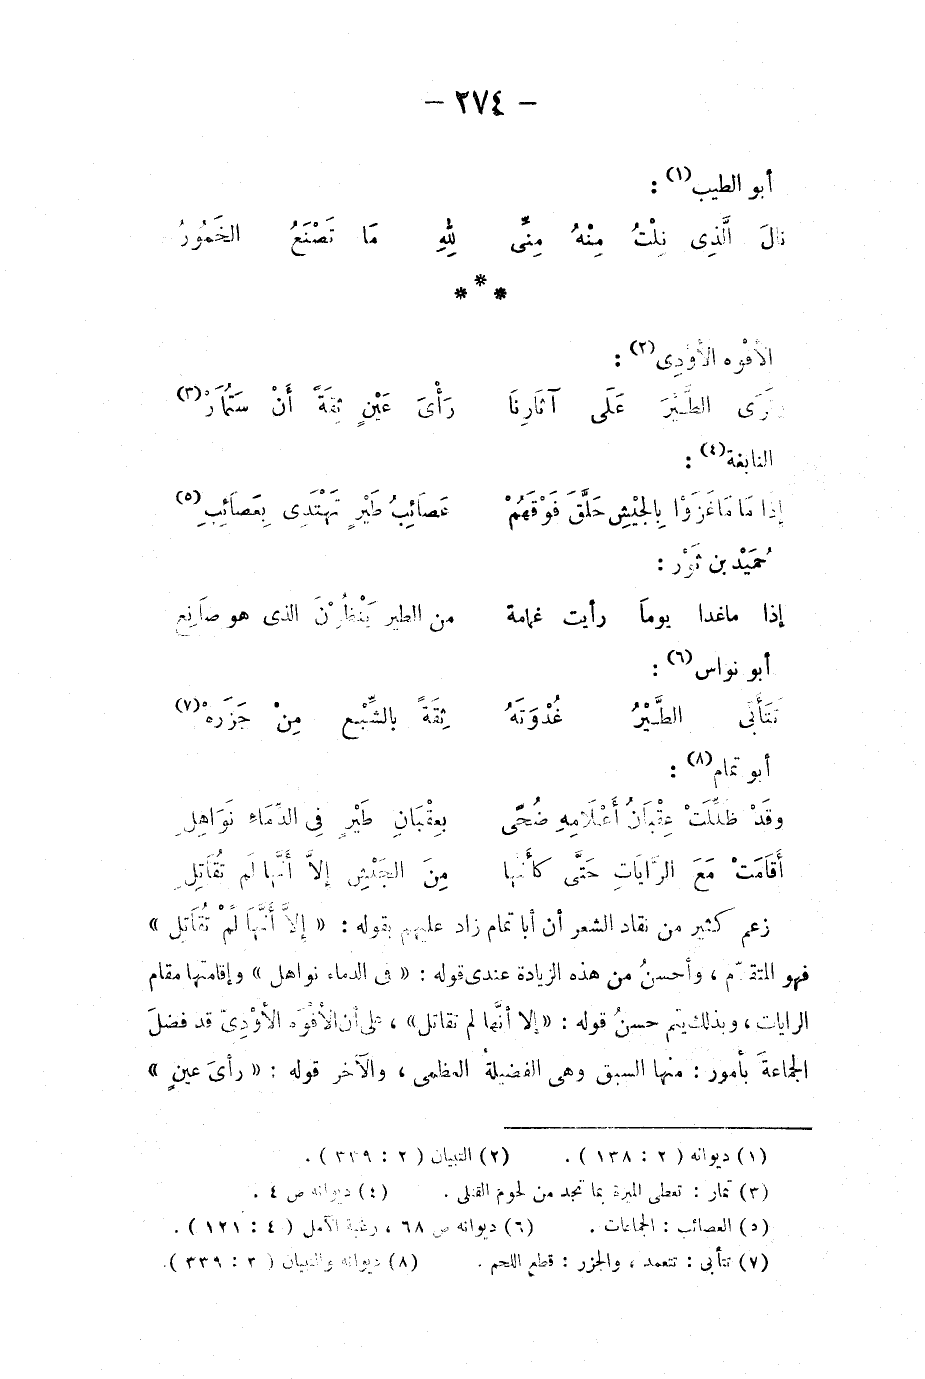 — ٢٧٤ —
أبو الطيب(١) :
نالَ الَّذِى نِلْتُ مِنْهُ مِنِّى لِلهِ مَا تَصْنَعُ الخَمُورُ
* * *
الأفْوه الأوْدِى(٢) :
وَتَرَى الطَّيْرَ عَلَى آثَارِنَا رَأْىَ عَيْنٍ ثِقَةً أَنْ سَتُمَارْ(٣)
النابغة(٤) :
إذَا مَا غَزَوْا بِالجَيْشِ حَلَّقَ فَوْقَهُمْ عَصَائِبُ طَيْرٍ تَهْتَدِى بِعَصَائِبِ(٥)
حُمَيْد بن ثَوْر :
إذا ماغدا يوماً رأيت غمامة من الطير يَنْظُرْنَ الذى هو صَانِع
أبو نواس(٦) :
تَتَأَبَّى الطَّيْرُ غُدْوَتَهُ ثِقَةً بالشِّبْعِ مِنْ جَزَرِهْ(٧)
أبو تمام(٨) :
وقَدْ ظُلِّلَتْ عِقْبَانُ أَعْلَامِهِ ضُحًى بِعِقْبَانِ طَيْرٍ فِى الدِّمَاءِ نَوَاهِلِ
أَقَامَتْ مَعَ الرَّايَاتِ حَتَّى كَأَنَّها مِنَ الجَيْشِ إلاَّ أَنَّها لَم تُقَاتِلِ
زعم كثير من نقاد الشعر أن أبا تمام زاد عليهم بقوله : « إلاَّ أَنَّهَا لَمْ تُقَاتِل »
فهو المتقدّم ، وأحسنُ من هذه الزيادة عندى قوله : « فى الدماء نواهل » وإقامتها مقام
الرايات ، وبذلك يتم حسنُ قوله : «إلا أنَّها لم تقاتل» ، على أن الأفْوَه الأوْدِىّ قد فضلَ
الجماعةَ بأمور : منها السبق وهى الفضيلةُ العظمى ، والآخر قوله : « رأىَ عينٍ »
(١) ديوانه ( ٢ : ١٣٨ ) . (٢) التبيان ( ٢ : ٣٣٩ ) .
(٣) تمار : تعطى الميرة بما تجد من لحوم القتلى . (٤) ديوانه ص ٤ .
(٥) العصائب : الجماعات . (٦) ديوانه ص ٦٨ ، رغبة الآمل ( ٤ : ١٢١ ) .
(٧) تتأبى : تتعمد ، والجزر : قطع اللحم . (٨) ديوانه والتبيان ( ٣ : ٣٣٩ ) .